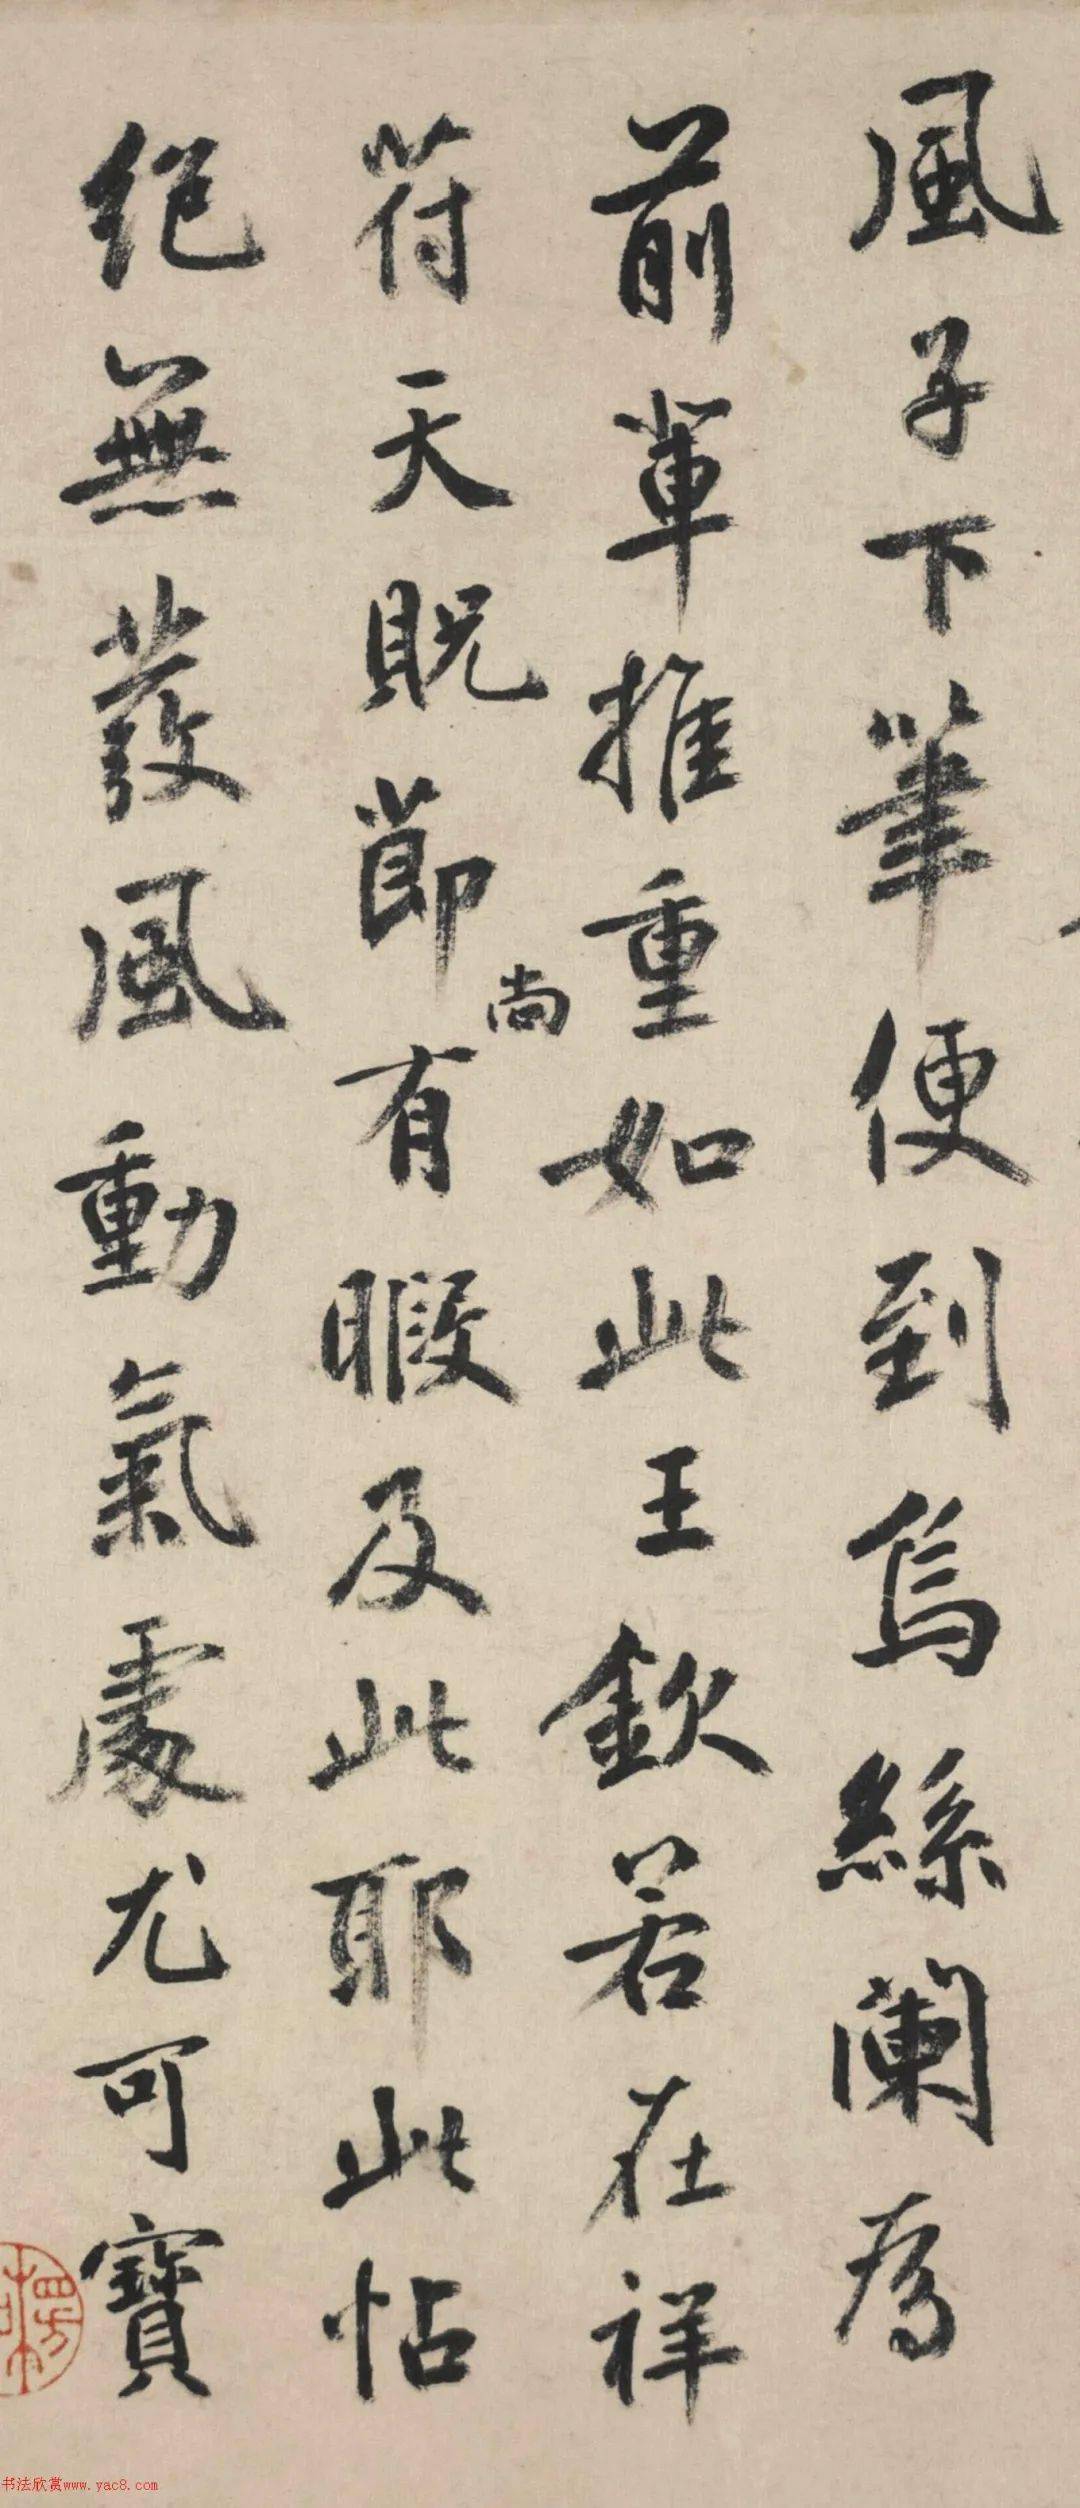 風子下筆便到烏絲闌為
前輩推重如此王欽若在祥
符天貺節尚有暇及此耶此帖
絕無發風動氣處尤可寶
书法欣赏www.yac8.com